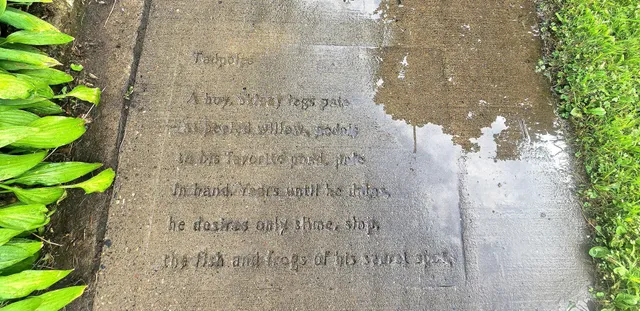 Tadpoles
A boy, skinny legs pale
as peeled willow, pedals
to his favorite pond, pole
in hand. Years until he
he desires only slime, slop,
the fish and frogs of his secret spot.